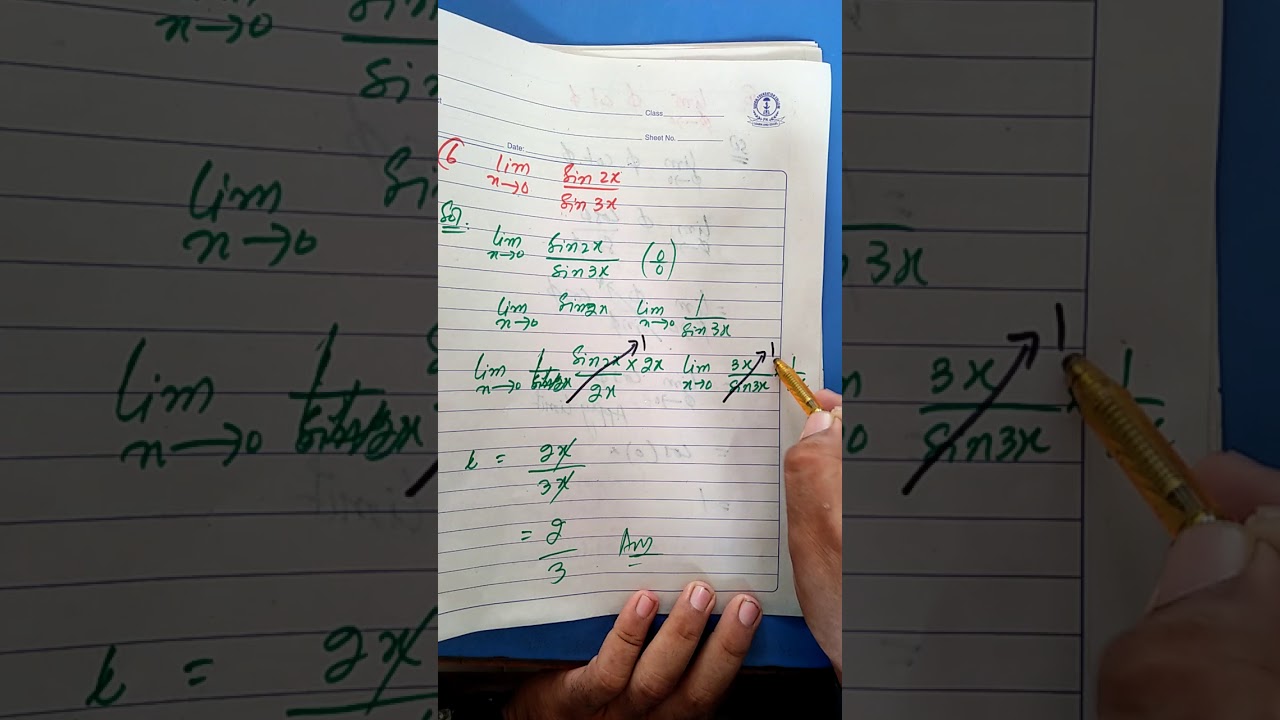 Class
Sheet No.
Date:
(6 lim x→0 sin 2x / sin 3x
Sol. lim x→0 sin 2x / sin 3x (0/0)
lim x→0 sin 2x lim x→0 1 / sin 3x
lim x→0 sin 2x / 2x ↗1 × 2x lim x→0 3x / sin 3x ↗1 × 1
= 2x / 3x
= 2 / 3 Ans